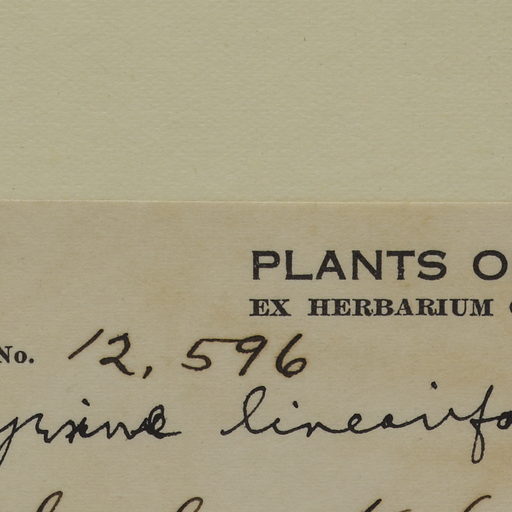 PLANTS O
EX HERBARIUM
No. 12,596
linearifo